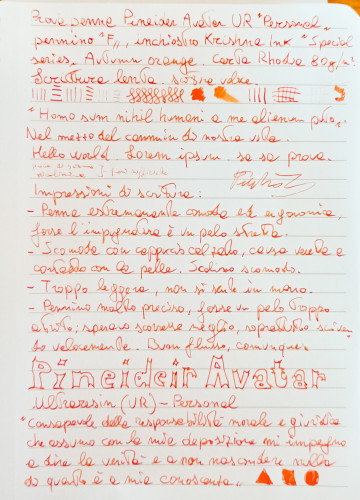 Prova penna Pineider Avatar UR "Personal"
pennino "F", inchiostro Krishna Ink "Special
series, Autumn orange. Carta Rhodia 80g/m²
Scrittura lenta. Scrittura veloce.
"Homo sum nihil humani a me alienum puto"
Nel mezzo del cammin di nostra vita.
Hello world. Lorem ipsum. sa sa prova.
Impressioni di scrittura:
- Penna estremamente comoda ed ergonomica,
forse l'impugnatura è un pelo stretta.
- Scomoda con cappuccio calzato, causa
contatto con la pelle. Scalino scomodo.
- Troppo leggera, non si sente in mano.
- Pennino molto preciso, forse un pelo troppo
; speravo scorresse meglio, soprattutto scriven
do velocemente. Buon flusso, comunque.
Pineideir Avatar
Ultraresin (UR) - Personal
"Consapevole della responsabilità morale e giuridica
che assumo con la mia deposizione mi impegno
a dire la verità e a non nascondere nulla
di quanto è a mia conoscenza"